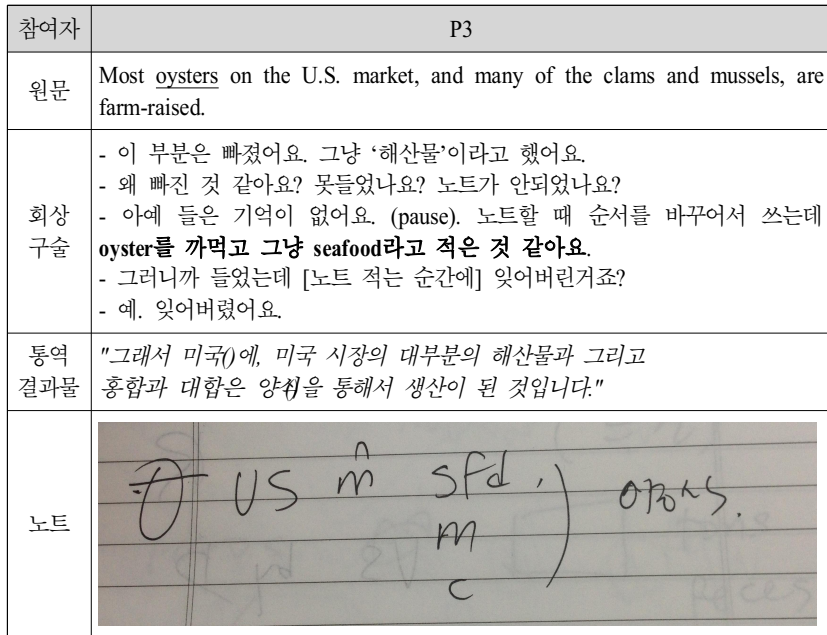 참여자 P3
원문 Most oysters on the U.S. market, and many of the clams and mussels, are
farm-raised.
회상
구술
- 이 부분은 빠졌어요. 그냥 ‘해산물’이라고 했어요.
- 왜 빠진 것 같아요? 못들었나요? 노트가 안되었나요?
- 아예 들은 기억이 없어요. (pause). 노트할 때 순서를 바꾸어서 쓰는데
oyster를 까먹고 그냥 seafood라고 적은 것 같아요.
- 그러니까 들었는데 [노트 적는 순간에] 잊어버린거죠?
- 예. 잊어버렸어요.
통역
결과물
"그래서 미국()에, 미국 시장의 대부분의 해산물과 그리고
홍합과 대합은 양식을 통해서 생산이 된 것입니다."
노트
US m sfd,
m
c